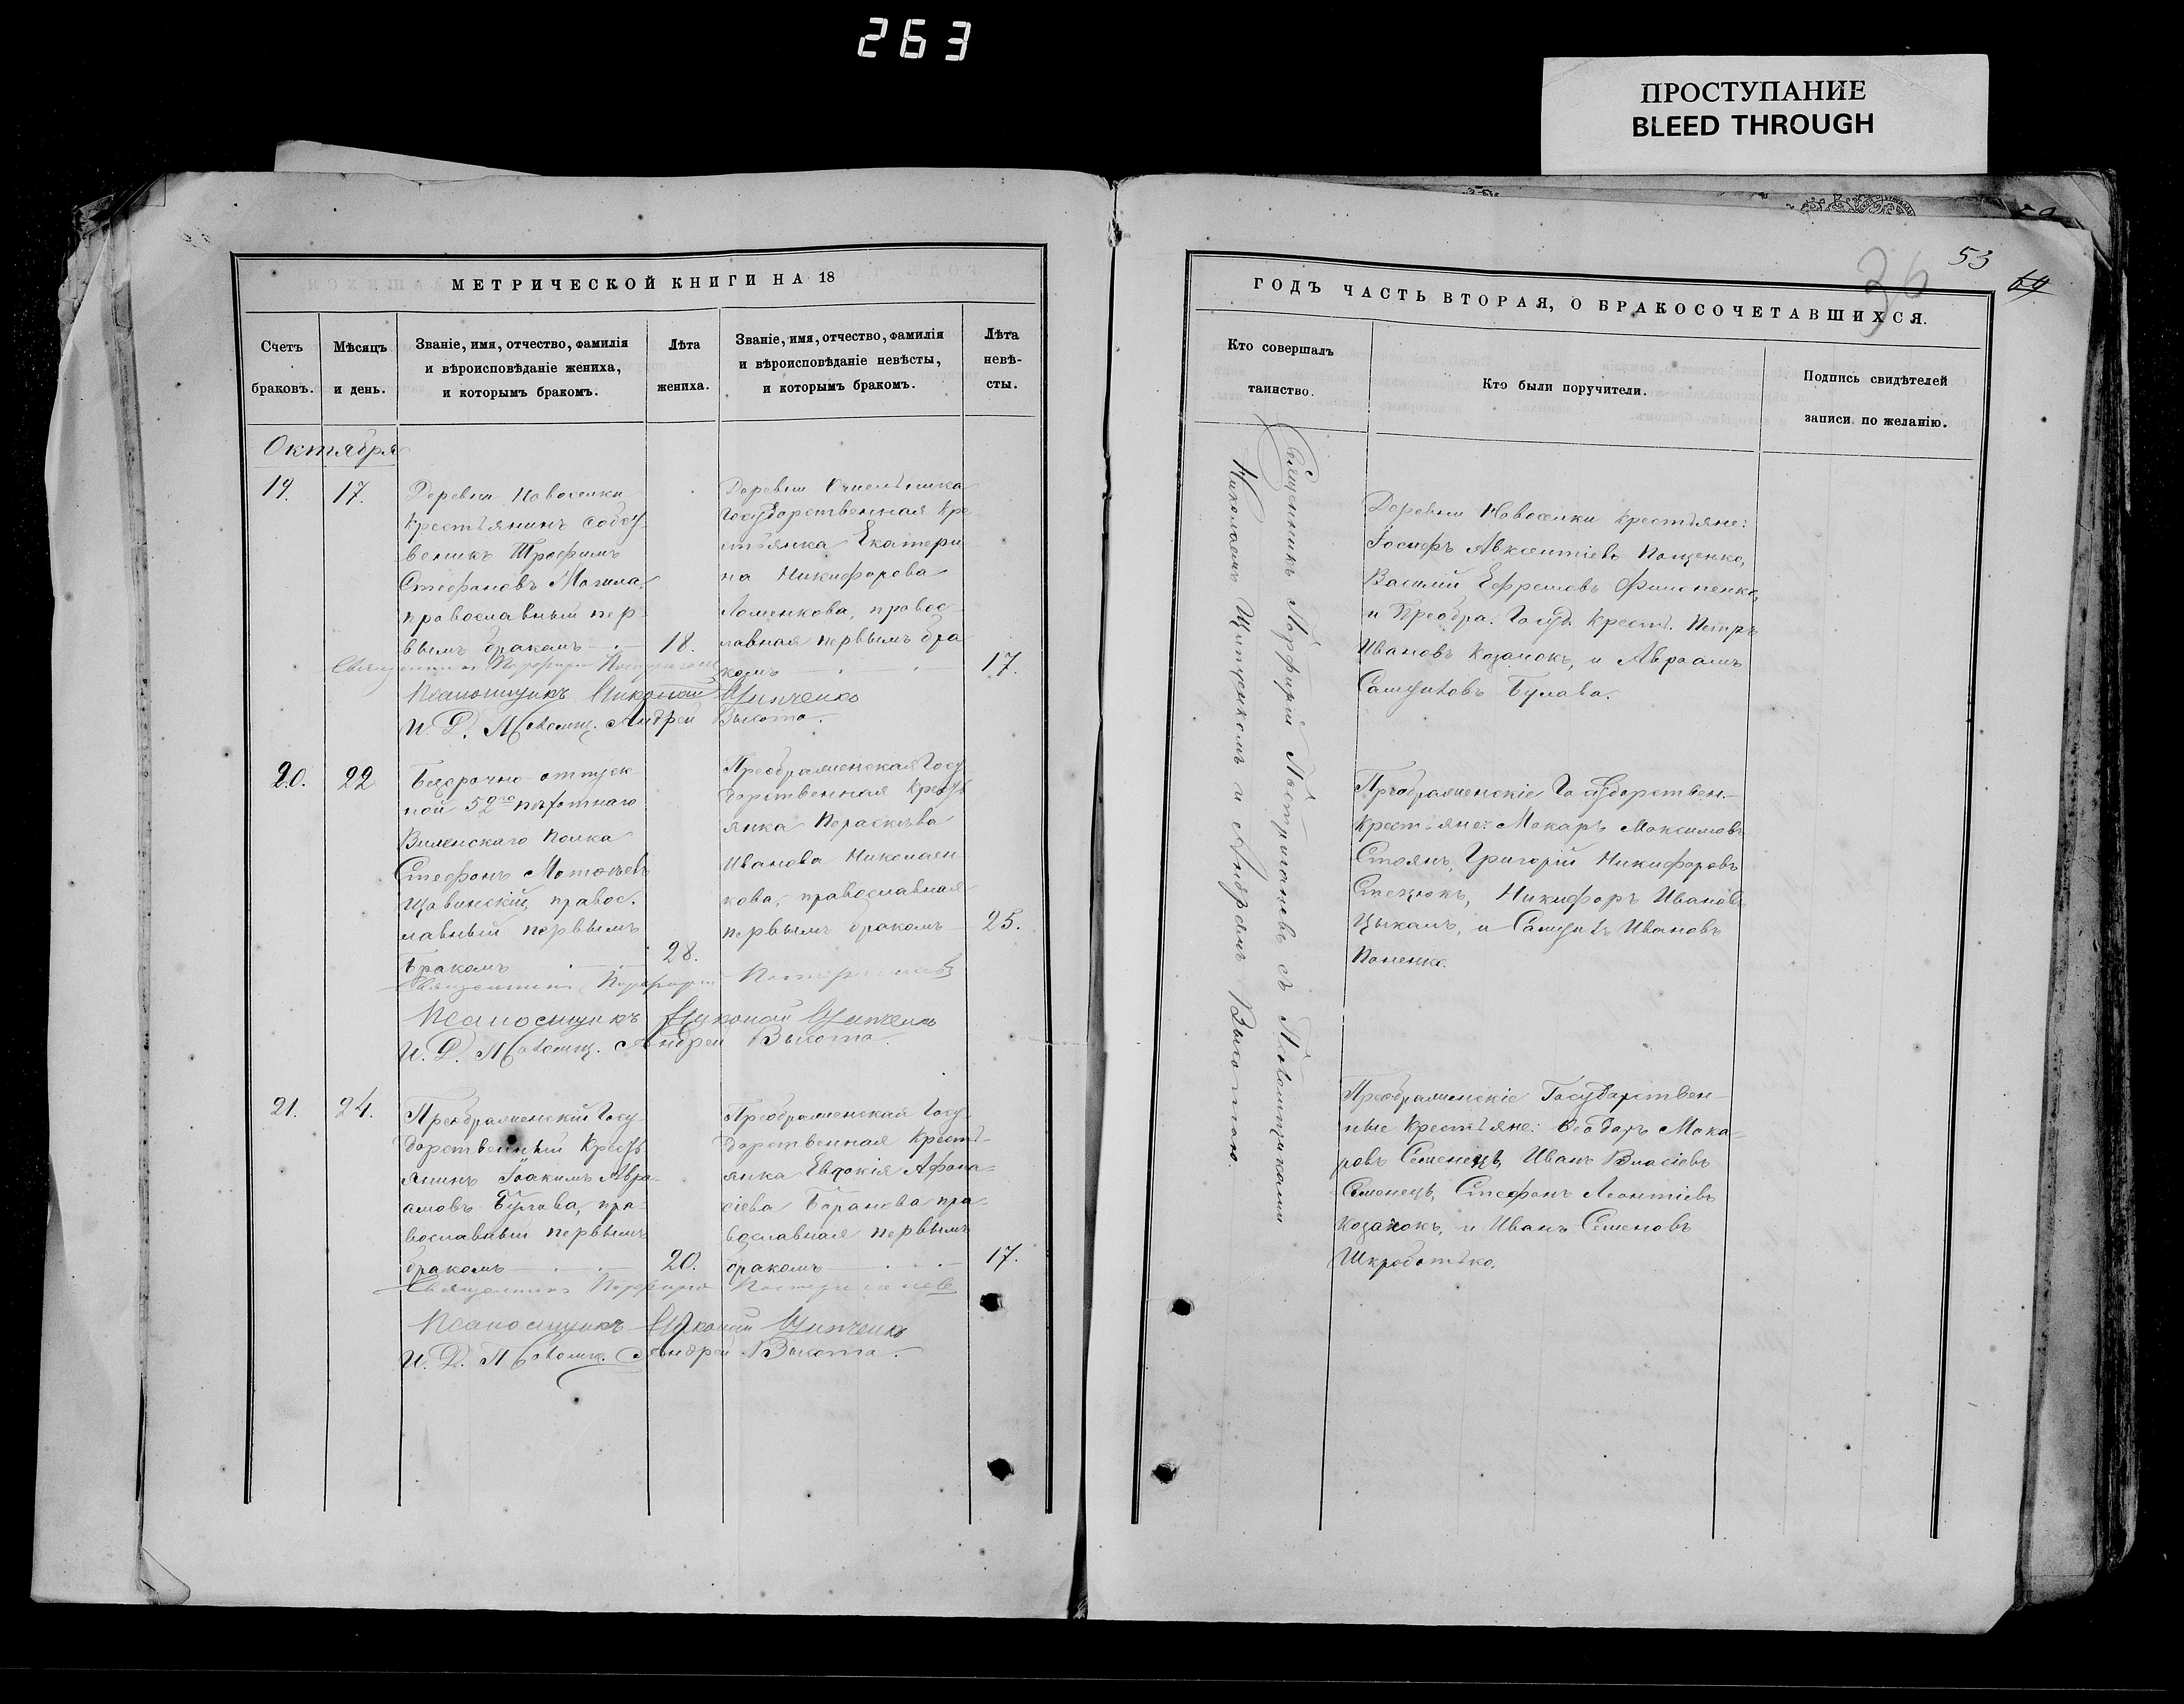 263
ПРОСТУПАНИЕ
BLEED THROUGH
53
36
64
МЕТРИЧЕСКОЙ КНИГИ НА 18
Счетъ браковъ.
Мѣсяцъ и день.
Званіе, имя, отчество, фамилія
и вѣроисповѣданіе жениха,
и которымъ бракомъ.
Лѣта жениха.
Званіе, имя, отчество, фамилія
и вѣроисповѣданіе невѣсты,
и которымъ бракомъ.
Лѣта невѣ-
сты.
Октября
19.
17.
Деревни Новоселки
крестьянинъ собст
веникъ Трофимъ
Стефановъ Могила,
православный пер-
вымъ бракомъ
18.
Деревни
Государственная кре-
стьянка Екатери
на Никифорова
Ломенкова, правос-
лавная первымъ бра
комъ
17.
Священникъ Порфирій
Псаломщикъ Николай Щипченко
И. Д. Псаломщ. Андрей Высота.
20.
22
Безсрочно-отпуск-
ной 52го пѣхотнаго
Виленскаго Полка
Стефанъ Матѳѣевъ
Щавинскій, правос.
лавный первымъ
бракомъ
28.
Преображенская Госу
дарственная Крестъ
янка Параскѣва
Иванова Николаен
кова, православная
первымъ бракомъ
25.
Священникъ Порфирій Постригачевъ
Псаломщикъ Николай Щипченко
И. Д. Псаломщ. Андрей Высота.
21.
24.
Преображенскій Госу
дарственный Крестъ
янинъ Іоакимъ Авра-
амовъ Булава, пра-
вославный первымъ
бракомъ
20.
Преображенская Госу-
дарственная Кресть-
янка Евдокія Афана-
сіева Баранова пра-
вославная первымъ
бракомъ
17.
Священникъ Порфирій Постригачевъ
Псаломщикъ Николай Щипченко
И. Д. Псаломщ. Андрей Высота.
ГОДЪ ЧАСТЬ ВТОРАЯ, О БРАКОСОЧЕТАВШИХСЯ.
Кто совершалъ
таинство.
Кто были поручители.
Подпись свидѣтелей
записи по желанію.
Священникъ Порфирій Постригачевъ съ Псаломщиками
Николаемъ Щипченкомъ и Андреемъ Высотою.
Деревни Новоселки крестьяне:
Іосифъ Авксентіевъ Пащенко,
Василій Ефремовъ Филоненко,
и Преобра. Госуд. Крест. Петръ
Ивановъ Козачокъ, и Авраамъ
Самуиловъ Булава.
Преображенскіе Государствен.
крестьяне: Макаръ Максимовъ
Стоянъ, Григорій Никифоровъ
Стецюкъ, Никифоръ Ивановъ
Цыкалъ, и Самуилъ Ивановъ
Попенко.
Преображенскіе Государствен-
ные крестьяне: Ѳеодоръ Мака-
ровъ Семенецъ, Иванъ Власіевъ
Семенецъ, Стефанъ Леонтіевъ
Козачокъ, и Иванъ Семеновъ
Шкработько.